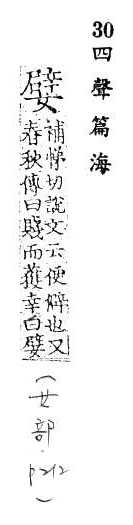 30四聲篇海
嬖
補悌切說文云便嬖也又
春秋傳曰賤而獲幸曰嬖
(女部·p212)